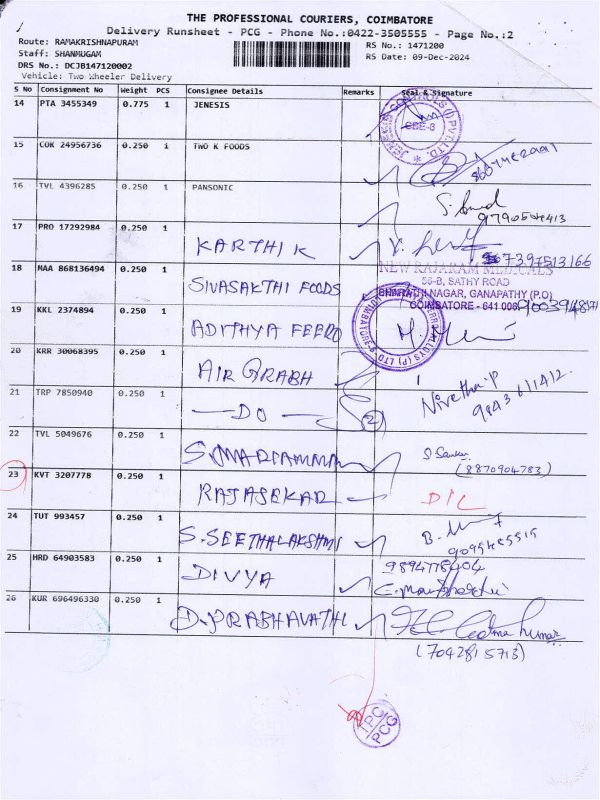 THE PROFESSIONAL COURIERS, COIMBATORE
Delivery Runsheet - PCG - Phone No.:0422-3505555 - Page No.:2
Route: RAMAKRISHNAPURAM
Staff: SHANMUGAM
DRS No.: DCJB147120002
Vehicle: Two Wheeler Delivery
RS No.: 1471200
RS Date: 09-Dec-2024
S No Consignment No Weight PCS Consignee Details Remarks Seal & Signature
14 PTA 3455349 0.775 1 JENESIS
15 COK 24956736 0.250 1 TWO K FOODS
16 TVL 4396285 0.250 1 PANSONIC
17 PRO 17292984 0.250 1 KARTHIK 7397513166
18 MAA 868136494 0.250 1 SIVASAKTHI FOODS
NEW RAJARAM MEDICALS
56-B, SATHY ROAD
BHARATH NAGAR, GANAPATHY (P.O)
COIMBATORE - 641 006
19 KKL 2374894 0.250 1 ADITHYA FEERO
20 KRR 30068395 0.250 1 AIR GRABH
Nivetha.P
9843611412.
21 TRP 7850940 0.250 1 — DO — 2
22 TVL 5049676 0.250 1 S.MARIAMMAL
(8870904783)
23 KVT 3207778 0.250 1 RAJASEKAR D/L
24 TUT 993457 0.250 1 S.SEETHALAKSHMI
25 HRD 64903583 0.250 1 DIVYA
26 KUR 696496330 0.250 1 D.PRABHAVATHI
(7042815713)
PCG